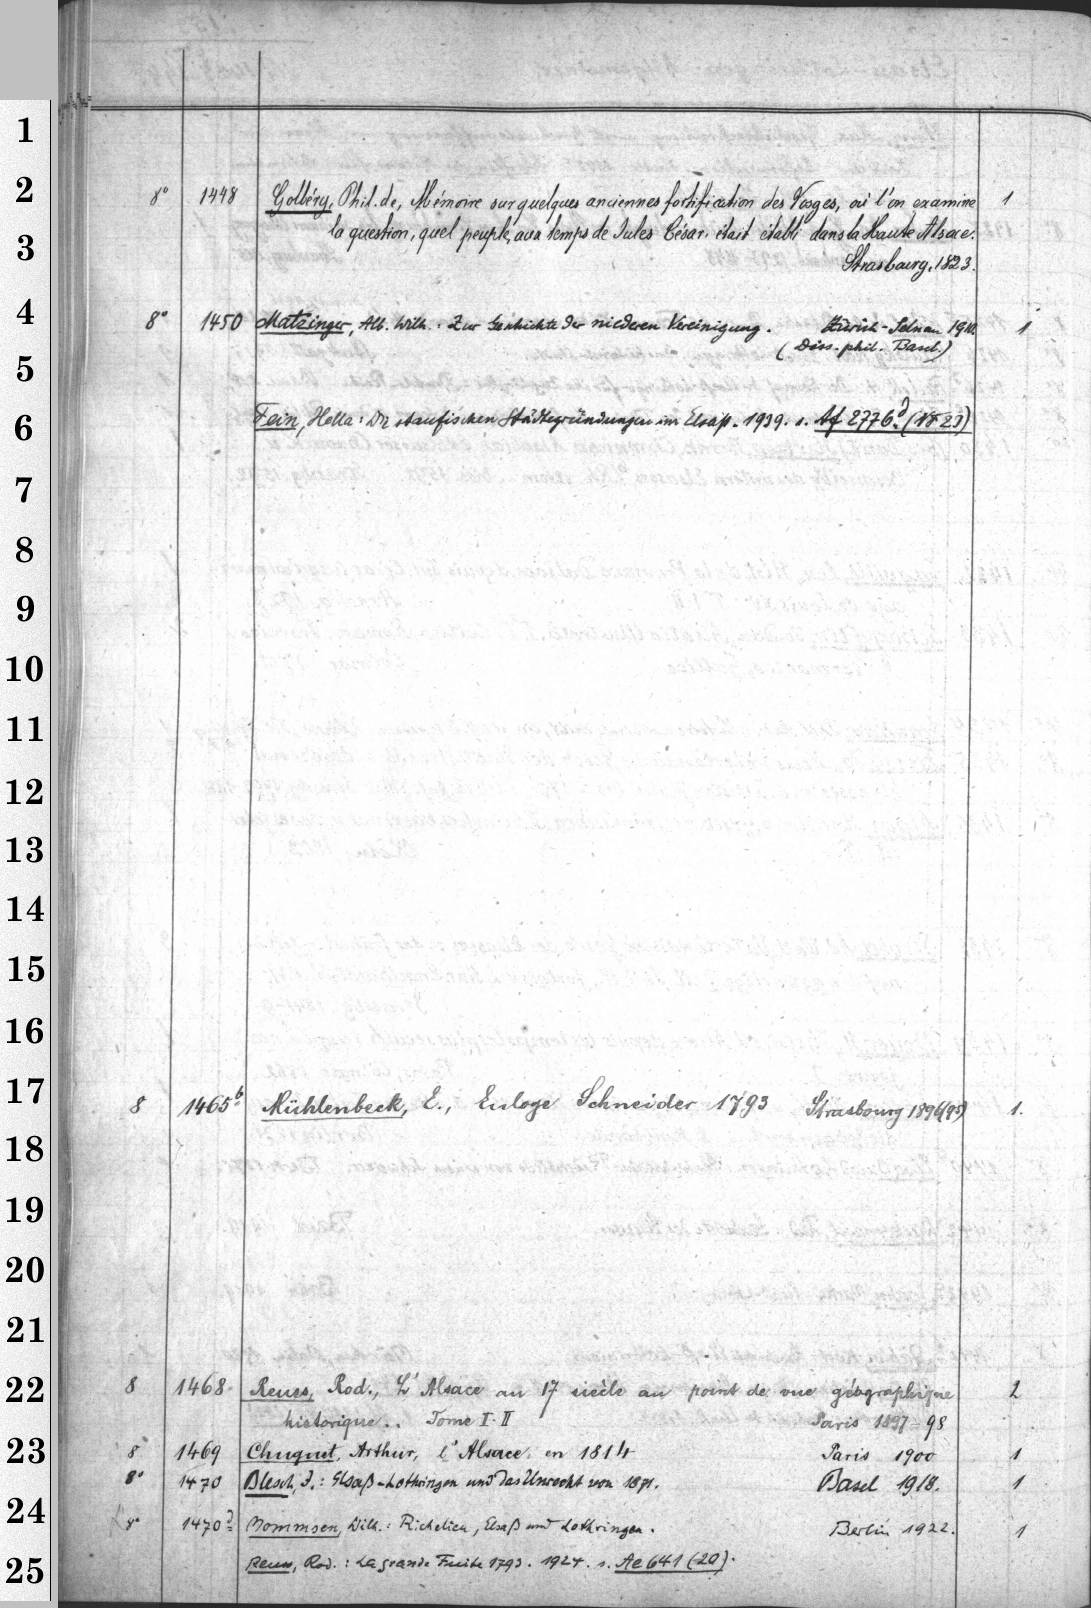 1
2
8° 1448 Golbéry, Phil. de, Mémoire sur quelques anciennes fortification des Vosges, où l'on examine 1
3
la question, quel peuple, aux temps de Jules César était établi dans la Haute Alsace.
Strasbourg, 1823.
4
8° 1450 Matzinger, Alb. Wilh.: Zur Geschichte der niederen Vereinigung. Zürich-Selnau 1910. 1
(Diss. phil. Basel.)
5
6
Fein, Hella: Die staufischen Städtegründungen im Elsaß. 1939. s. Af 2776 d (Nr 23)
7
8
9
10
11
12
13
14
15
16
17
8 1465b Mühlenbeck, E., Euloge Schneider 1793 Strasbourg 1896(95) 1.
18
19
20
21
22
8 1468 Reuss, Rod., L'Alsace au 17 siècle au point de vue géographique 2
historique.. Tome I-II Paris 1897-98
23
8° 1469 Chuquet, Arthur, l'Alsace en 1814 Paris 1900 1
8° 1470 Blesch, J.: Elsaß-Lothringen und das Unrecht von 1871. Basel 1918. 1
24
8° 1470 Mommsen, Wilh.: Richelieu, Elsaß und Lothringen. Berlin 1922. 1
25
Reuss, Rod.: La grande Fuite 1793. 1924. s. Ae 641 (20).